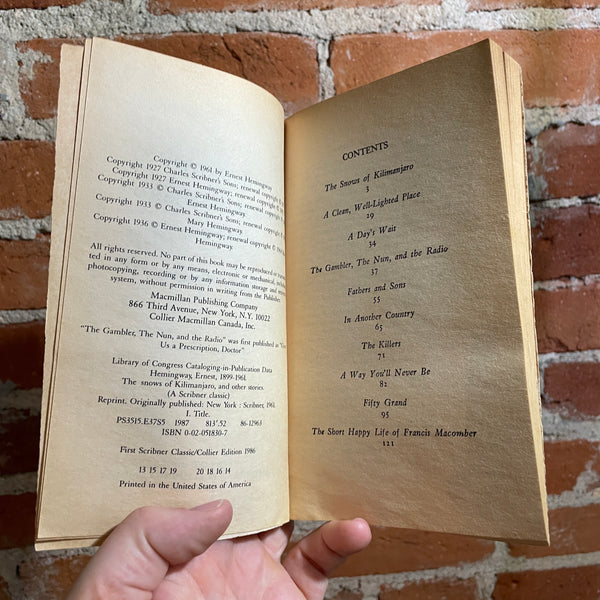 Copyright © 1964 by Ernest Hemingway
Copyright 1927 Charles Scribner's Sons; renewal copyright
Copyright 1927 Ernest Hemingway; renewal copyright ©
Ernest Hemingway
Copyright 1933 © Charles Scribner's Sons; renewal copyright ©
Hemingway
Copyright 1933 © Charles Scribner's Sons; renewal copyright ©
Mary Hemingway
Copyright 1936 © Ernest Hemingway; renewal copyright ©
Hemingway
All rights reserved. No part of this book may be reproduced or
ted in any form or by any means, electronic or mechanical,
photocopying, recording or by any information storage and
system, without permission in writing from the Publisher.
Macmillan Publishing Company
866 Third Avenue, New York, N.Y. 10022
Collier Macmillan Canada, Inc.
"The Gambler, The Nun, and the Radio" was first published as
Us a Prescription, Doctor"
Library of Congress Cataloging-in-Publication Data
Hemingway, Ernest, 1899-1961.
The snows of Kilimanjaro, and other stories.
(A Scribner classic)
Reprint. Originally published: New York : Scribner, 1961.
I. Title.
PS3515.E37S5 1987 813'.52 86-12963
ISBN 0-02-051830-7
First Scribner Classic/Collier Edition 1986
13 15 17 19 20 18 16 14
Printed in the United States of America
CONTENTS
The Snows of Kilimanjaro
3
A Clean, Well-Lighted Place
29
A Day's Wait
34
The Gambler, The Nun, and the Radio
37
Fathers and Sons
55
In Another Country
65
The Killers
71
A Way You'll Never Be
82
Fifty Grand
95
The Short Happy Life of Francis Macomber
121